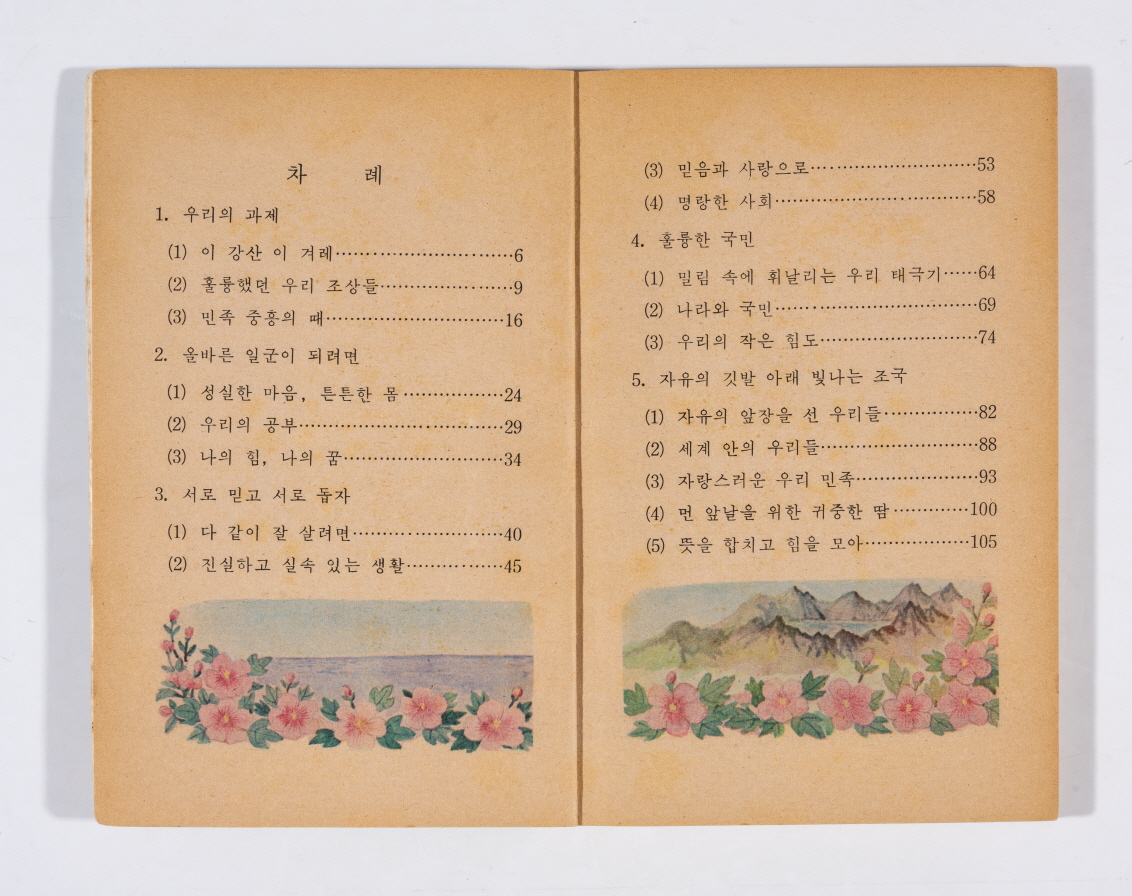 차 례
1. 우리의 과제
(1) 이 강산 이 겨레……………………………6
(2) 훌륭했던 우리 조상들……………………9
(3) 민족 중흥의 때……………………………16
2. 올바른 일군이 되려면
(1) 성실한 마음, 튼튼한 몸………………24
(2) 우리의 공부…………………………………29
(3) 나의 힘, 나의 꿈…………………………34
3. 서로 믿고 서로 돕자
(1) 다 같이 잘 살려면………………………40
(2) 진실하고 실속 있는 생활………………45
(3) 믿음과 사랑으로…………………………53
(4) 명랑한 사회…………………………………58
4. 훌륭한 국민
(1) 밀림 속에 휘날리는 우리 태극기……64
(2) 나라와 국민…………………………………69
(3) 우리의 작은 힘도…………………………74
5. 자유의 깃발 아래 빛나는 조국
(1) 자유의 앞장을 선 우리들………………82
(2) 세계 안의 우리들…………………………88
(3) 자랑스러운 우리 민족……………………93
(4) 먼 앞날을 위한 귀중한 땀……………100
(5) 뜻을 합치고 힘을 모아…………………105